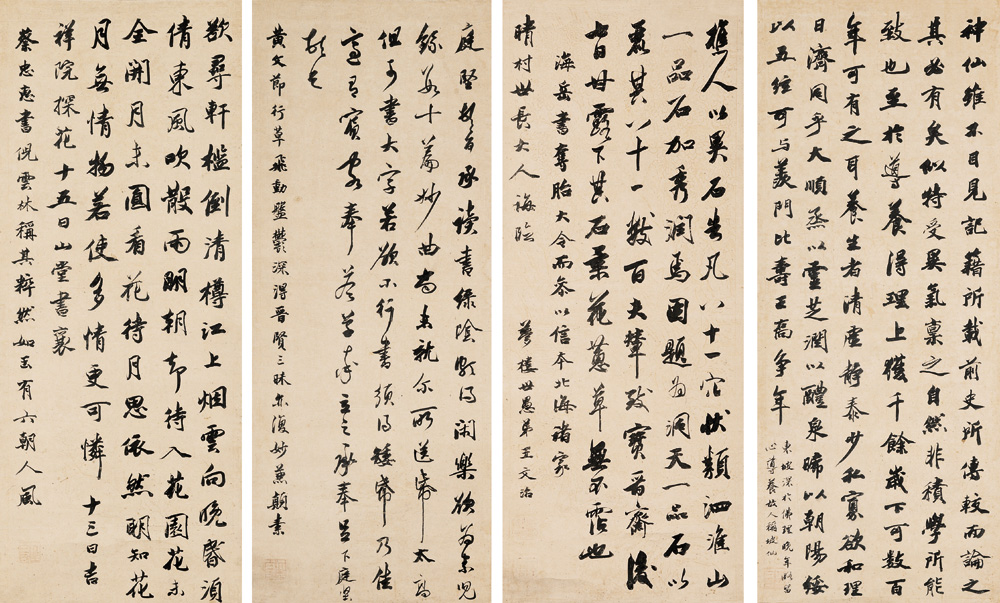 神仙雖不目見記籍所載前史所傳較而論之
其必有矣似特受異氣稟之自然非積學所能
致也至於導養得理上獲千餘歲下可數百
年可有之耳養生者清虛靜泰少私寡欲和理
日濟同乎大順蒸以靈芝潤以醴泉晞以朝陽綏
以五絃可與羨門比壽王喬爭年
東坡深於佛理晚年
心導養故人稱坡仙
樵人以異石告凡八十一穴狀類泗淮山
一品石加秀潤焉因題為洞天一品石以
其八十一數百夫輦致寶晉齋後
甘露下其石葉花蕙草無不霑也
海岳書奪胎大令而參以信本北海諸家
晴村世長大人誨臨
夢樓世愚弟王文治
庭堅承讀書綠陰頗得閑樂欲為索兒
錄數十篇妙曲尚未就爾所送帋太高
但可書大字若欲小行書須得矮帋乃佳
適有賓客奉答草率立之承奉足下庭堅
黃文節行草飛動盤鬱深得晉賢三昧亦復妙兼顛素
欲尋軒檻倒清樽江上烟雲向晚昏須
倩東風吹散雨明朝却待入花園花未
全開月未圓看花待月思依然明知花
月無情物若使多情更可憐 十三日吉
祥院探花十五日山堂書襄
蔡忠惠書倪雲林稱其粹然如玉有六朝人風